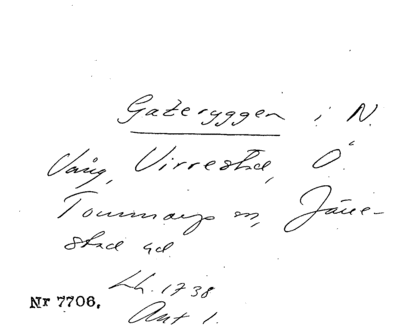 Gateryggen i N.
Vång, Virrestad, Ö.
Tommarps sn, Järre-
stad hd.
Lh. 1738
Akt 1.
Nr 7706.